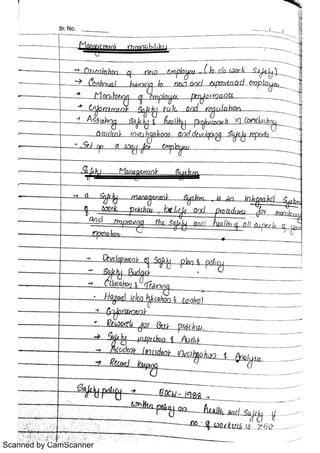 Sr. No.
Management responsibility
→ Orientation of new employee (to do work Safely)
→ Continual training to new and experienced employee
→ Monitoring of employee performance
→ Enforcement Safety rule and regulation
→ Assisting Safety & health Professionals in conducting
accident investigations and developing Safety reports
- Set up a way for employee
Safety Management System
→ a Safety management System, is an integrated System
of work practice, beliefs and procedures for monitoring
and improving the Safety and health of all aspects of your
operation
- Development of Safety plan & policy
- Safety Budget
- Education & Training
- Hazard identification & control
→ Enforcement
- Research for Best practices
→ Safety inspection & Audit
- Accident / incident investigation & Analysis
→ Record keeping
Safety policy → BOCW - 1988 -
written policy on health and Safety if
no. of workers is 250
Scanned by CamScanner